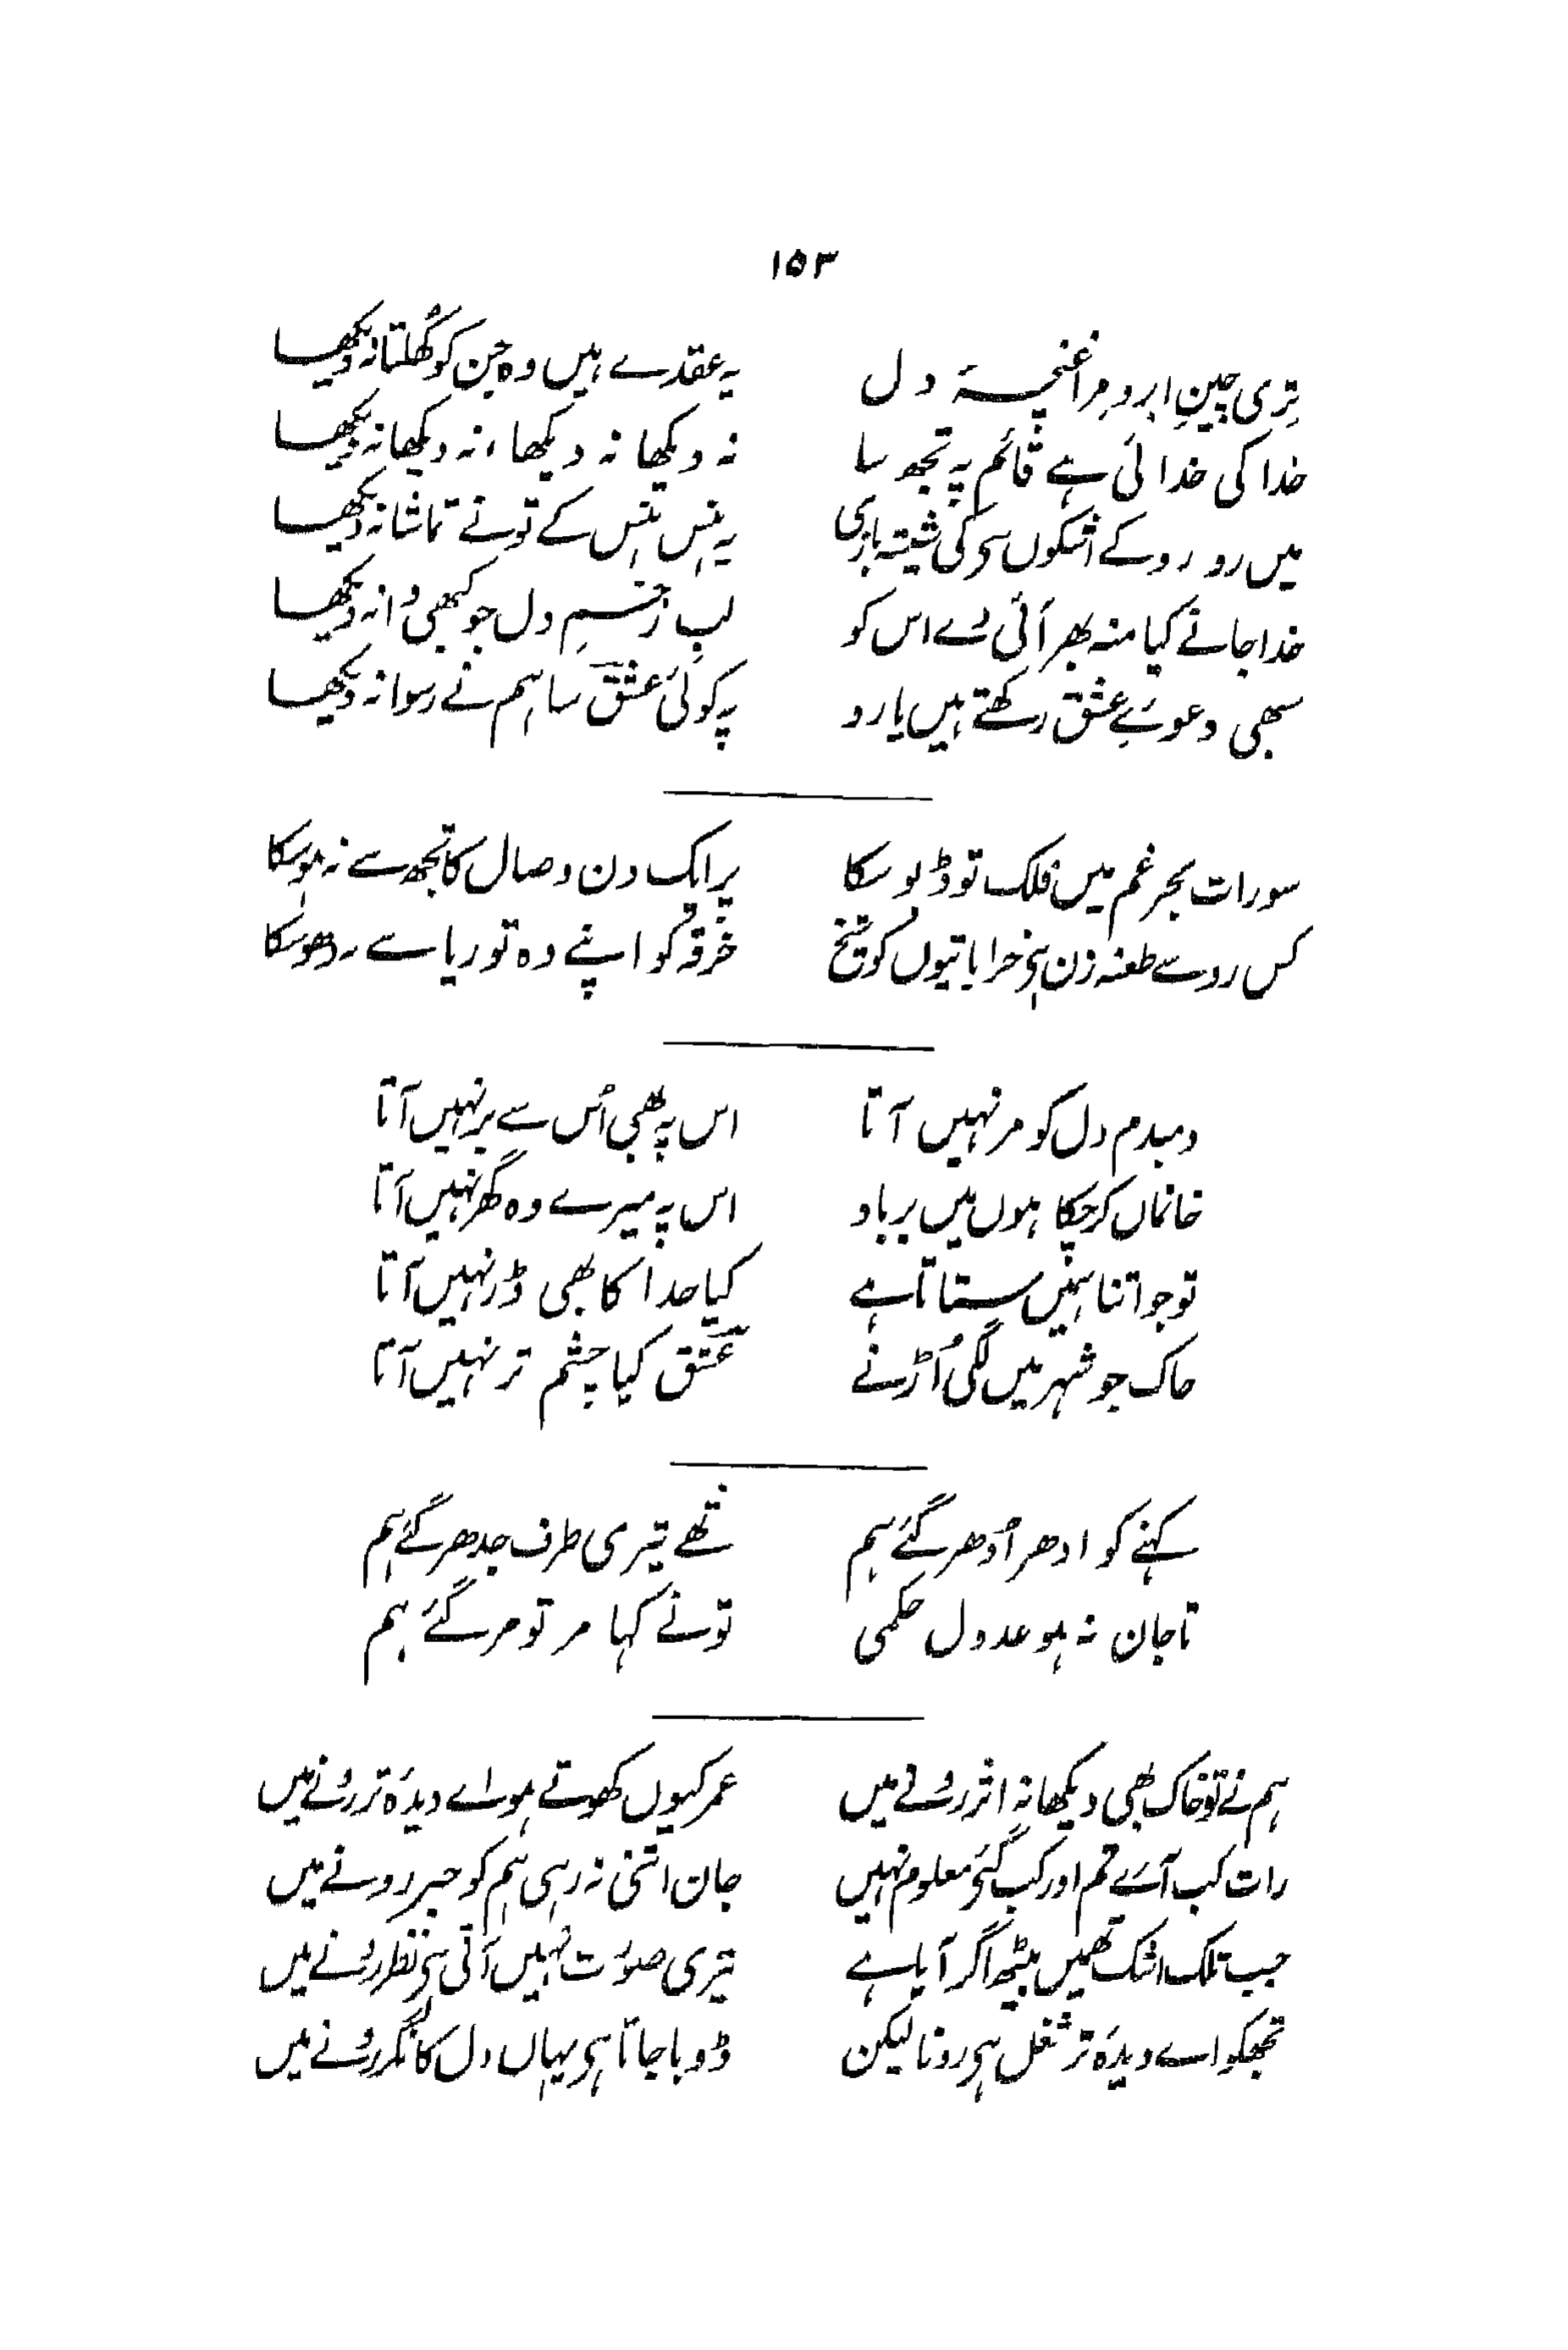 ۱۵۳
تِری چینِ ابرو مِرا غنچۂ دل یہ عقدے ہیں وہ جن کو کُھلتا نہ دیکھا
خدا کی خدائی ہے قائم پہ تجھ سا نہ دیکھا نہ دیکھا، نہ دیکھا نہ دیکھا
میں رو رو کے اشکوں سے کی شیشہ بازی یہ ہنس ہنس کے تونے تماشا نہ دیکھا
خدا جانے کیا منہ بھر آئی دے اس کو لبِ زخمِ دل جو کبھی وا نہ دیکھا
سبھی دعوےِ عشق رکھتے ہیں یارو پہ کوئی عشق سا ہم نے رسوا نہ دیکھا
سو رات بحرِ غم میں فلک تو ڈبو سکا پر ایک دن وصال کا تجھ سے نہ ہو سکا
کس رو سے طعنہ زن ہے خراباتیوں کو شیخ خرقہ کو اپنے وہ تو ریا سے نہ دھو سکا
دمبدم دل کو مر نہیں آتا اس پہ بھی اُس سے بر نہیں آتا
خانماں کر چکا ہوں میں برباد اس پہ میرے وہ گھر نہیں آتا
تو جو اتنا ہمیں ستاتا ہے کیا خدا کا بھی ڈر نہیں آتا
خاک جو شہر میں لگی اُڑنے عشق کیا چشم تر نہیں آتا
کہنے کو ادھر اُدھر گئے ہم تھے تیری طرف جدھر گئے ہم
تا جان نہ ہو عدول حکمی تونے کہا مر تو مر گئے ہم
ہم نے تو خاک بھی دیکھا نہ اثر رونے میں عمر کیوں کھوتے ہو اے دیدۂ تر رونے میں
رات کب آئے تم اور کب گئے معلوم نہیں جان اتنی نہ رہی ہم کو خبر رونے میں
جب تلک اشک تھمیں بیٹھ اگر آیا ہے تیری صورت نہیں آتی ہے نظر رونے میں
تجھکو اے دیدۂ تر شغل ہے رونا لیکن ڈوبا جاتا ہے یہاں دل کا نگر رونے میں